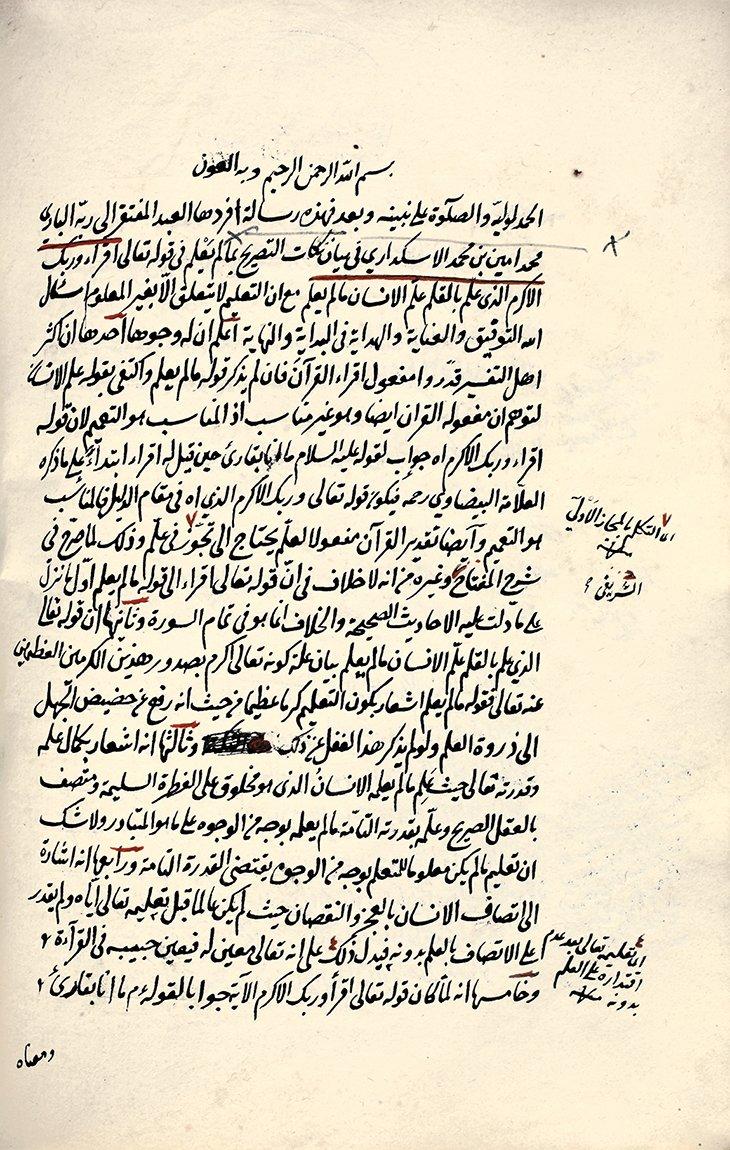 بسم الله الرحمن الرحيم وبه العون
الحمد لوليه والصلوة على نبيه وبعد فهذه رسالة افردها العبد المفتقر الى ربه البارى
محمد امين بن محمد الاسكدارى فى بيان نكات التصريح بمالم يعلم فى قوله تعالى اقراء وربك
الاكرم الذى علم بالقلم علم الانسان مالم يعلم مع ان التعليم لا يتعلق الا بغير المعلوم اسئل
الله التوفيق والعناية والهداية فى البداية والنهاية اعلم ان له وجوها احدها ان اكثر
اهل التفسير قدروا مفعول اقراء القرآن فان لم يذكر قوله مالم يعلم واكتفى بقوله علم الانسان
لتوهم ان مفعوله القران ايضا وهو غير مناسب اذ المناسب هو التعميم لان قوله
اقراء وربك الاكرم اه جواب لقوله عليه السلام ما انا بقارئ حين قيل له اقراء ابتداء على ما ذكره
العلامة البيضاوى رحمه فيكون قوله تعالى وربك الاكرم الذى اه فى مقام الدليل فالمناسب
هو التعميم وايضا تقدير القرآن مفعولا لعلم يحتاج الى تجوز فى علم وذلك لما صرح فى
شرح المفتاح وغيره من انه لا خلاف فى ان قوله تعالى اقراء الى قوله مالم يعلم اول ما نزل
على ما دلت عليه الاحاديث الصحيحة والخلاف انما هو فى تمام السورة وثانيها ان قوله تعالى
الذى علم بالقلم علم الانسان مالم يعلم بيان علة كونه تعالى اكرم بصدور هذين الكرمين العظيمين
عنه تعالى فقوله مالم يعلم اشعار بكون التعليم كرما عظيما من حيث انه رفع عن حضيض الجهل
الى ذروة العلم ولو لم يذكر هذا الغفل عن ذلك وثالثها انه اشعار بكمال علمه
وقدرته تعالى حيث علم مالم يعلمه الانسان الذى هو مخلوق على الفطرة السليمة ومتصف
بالعقل الصريح وعلم بقدرته التامة مالم يعلمه بوجه من الوجوه على ما هو المتبادر ولا شك
ان تعليم مالم يكن معلوما للمتعلم بوجه من الوجوه يقتضى القدرة التامة ورابعها انه اشارة
الى اتصاف الانسان بالعجز والنقصان حيث لم يكن عالما قبل تعليمه تعالى اياه ولم يقدر
على الاتصاف بالعلم بدونه فيدل ذلك على انه تعالى معين له فيعين حبيبه فى القرآءة
وخامسها انه لما كان قوله تعالى اقرأ وربك الاكرم الآية جوابا لقوله عم ما انا بقارئ
ومعناه
الشريفى
اى تعليمه تعالى بعد عدم
اقتداره على العلم
بدونه منه